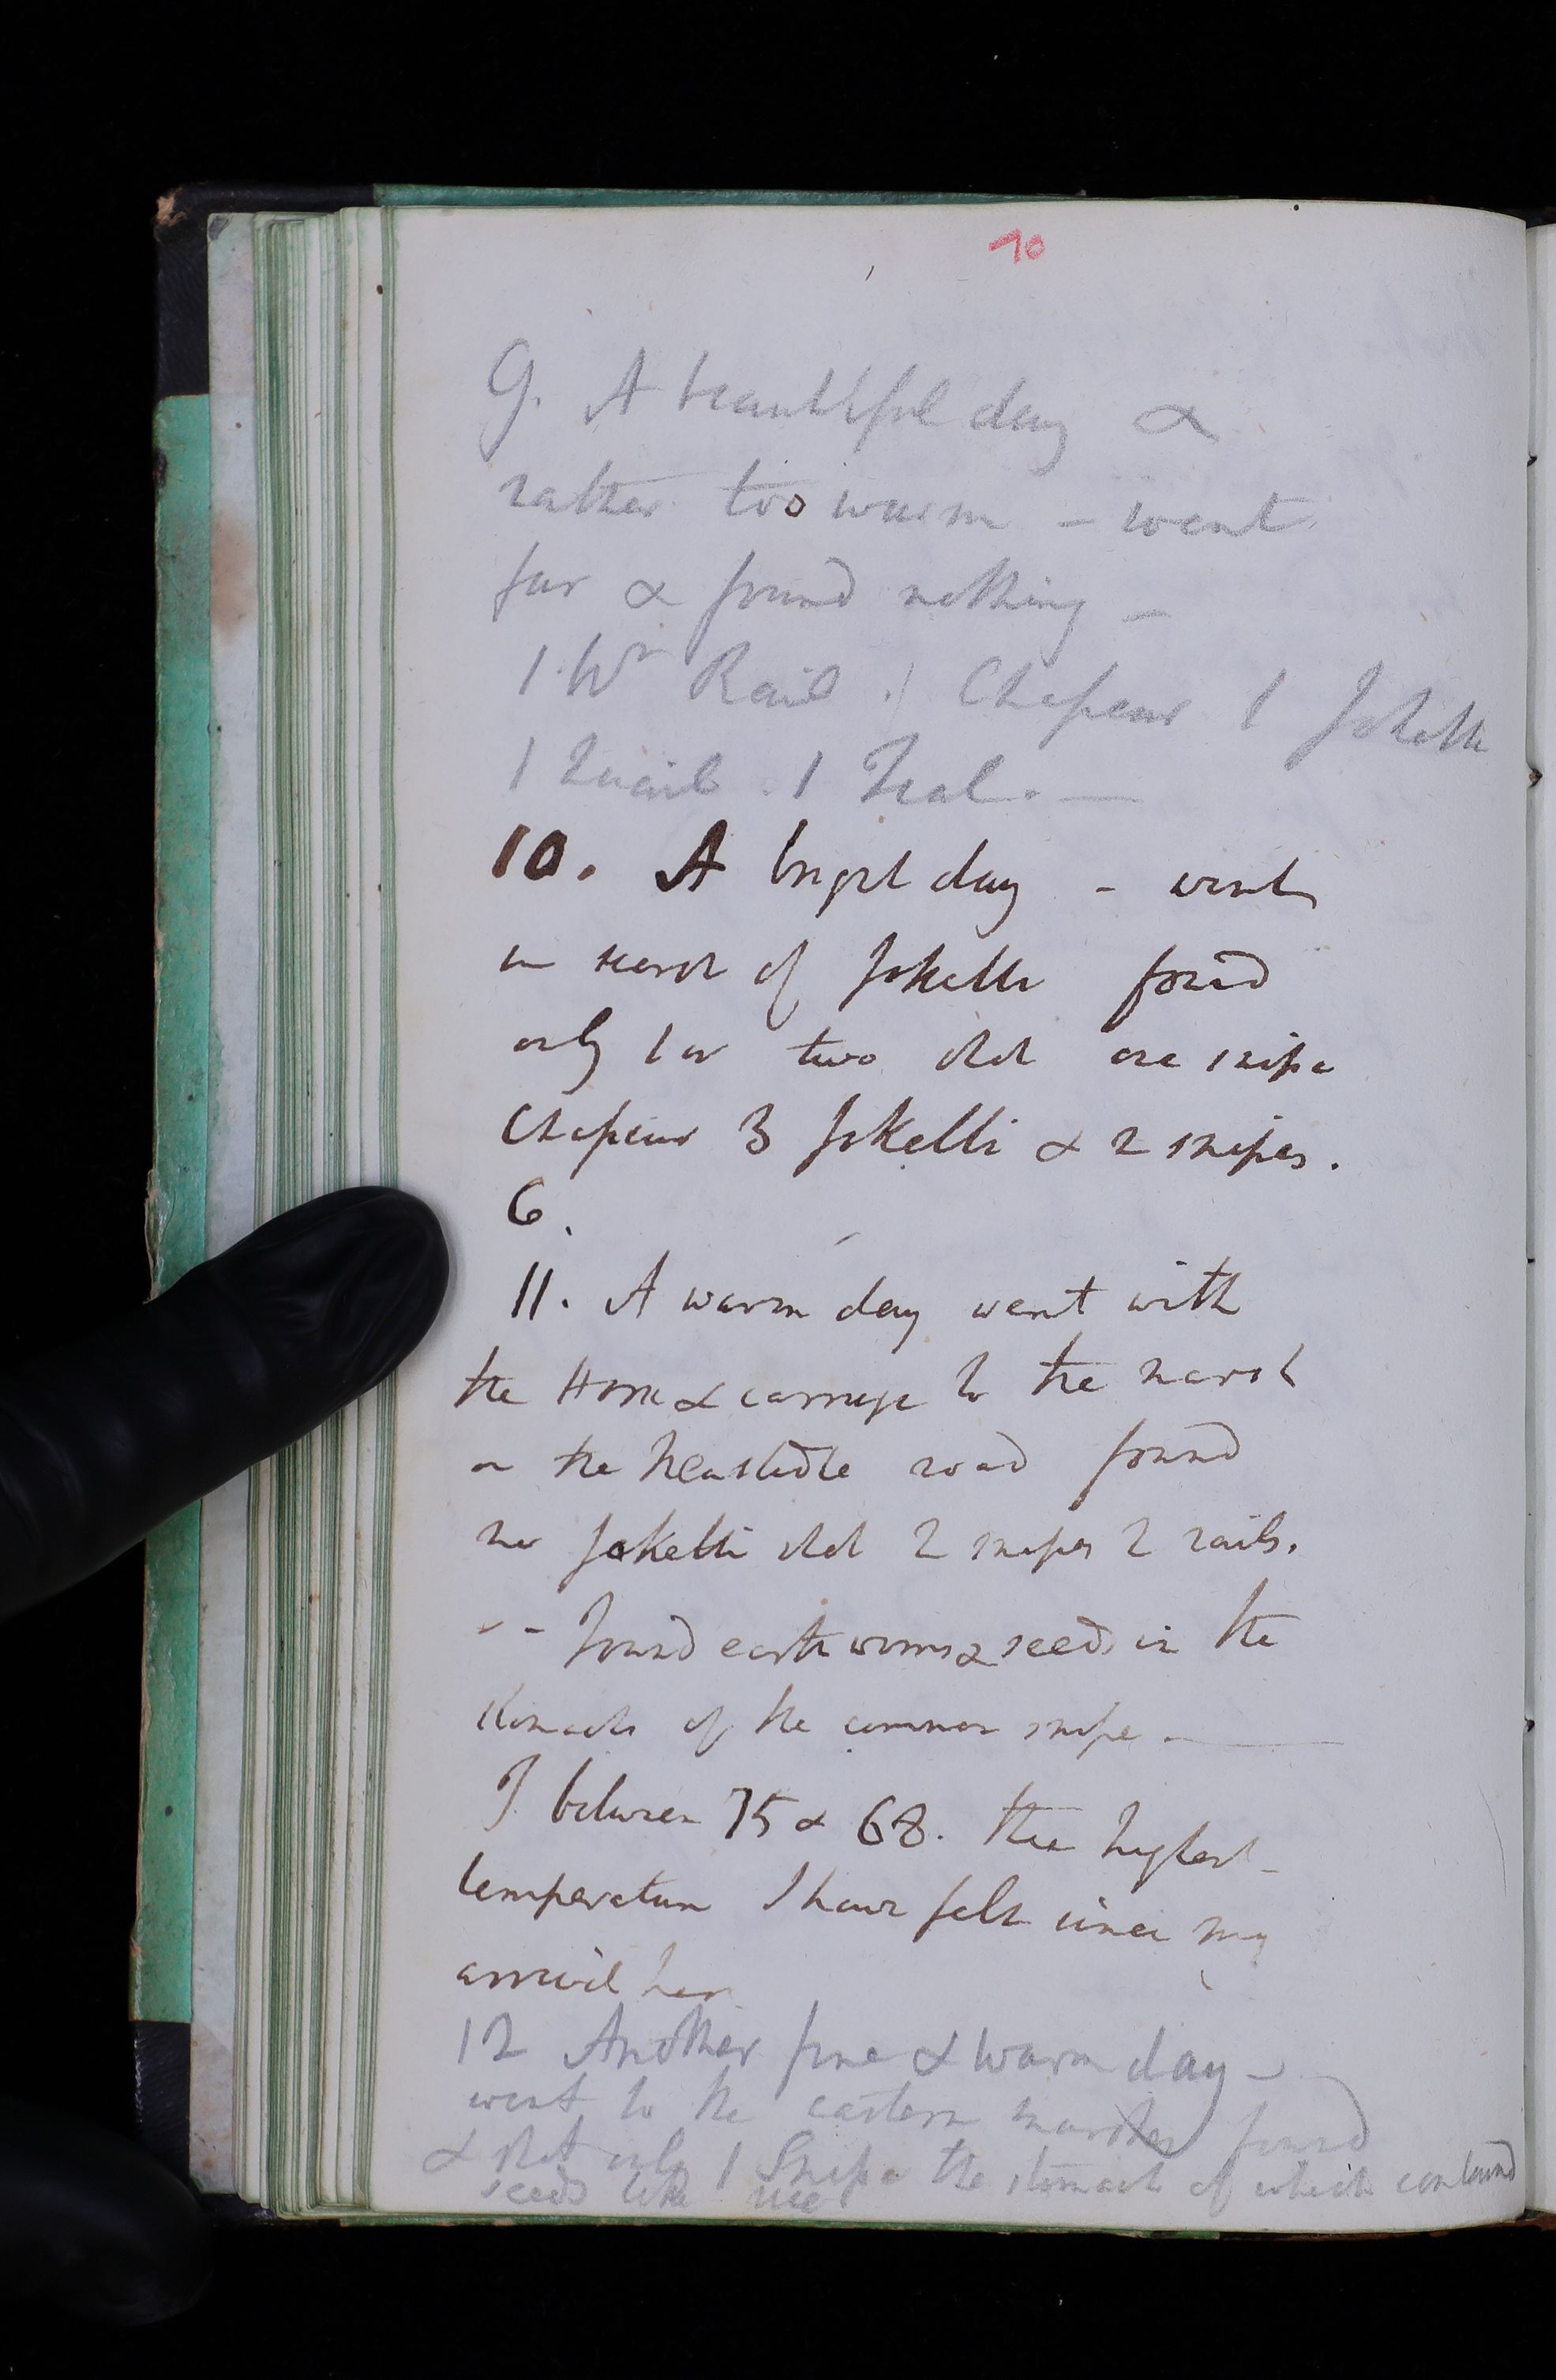 10
9. A beautiful day &
rather too warm - went
far & found nothing -
1 Wr Rail . 1 Chasseur 1 Joketti
1 Quail . 1 Teal. -
10. A bright day - went
in search of Joketti found
only 1 or two shot one snipe
3 Joketti & 2 snipes.
6.
11. A warm day went with
the Horse & carriage to the marsh
on the road found
no Joketti shot 2 snipes 2 rails.
- - Found earth worms & seeds in the
stomach of the common snipe -
T between 75 & 68. the highest
temperature I have felt since my
arrival here
12 Another fine & warm day -
went to the eastern marshes found
& shot only 1 Snipe the stomach of which contained
seeds like rice